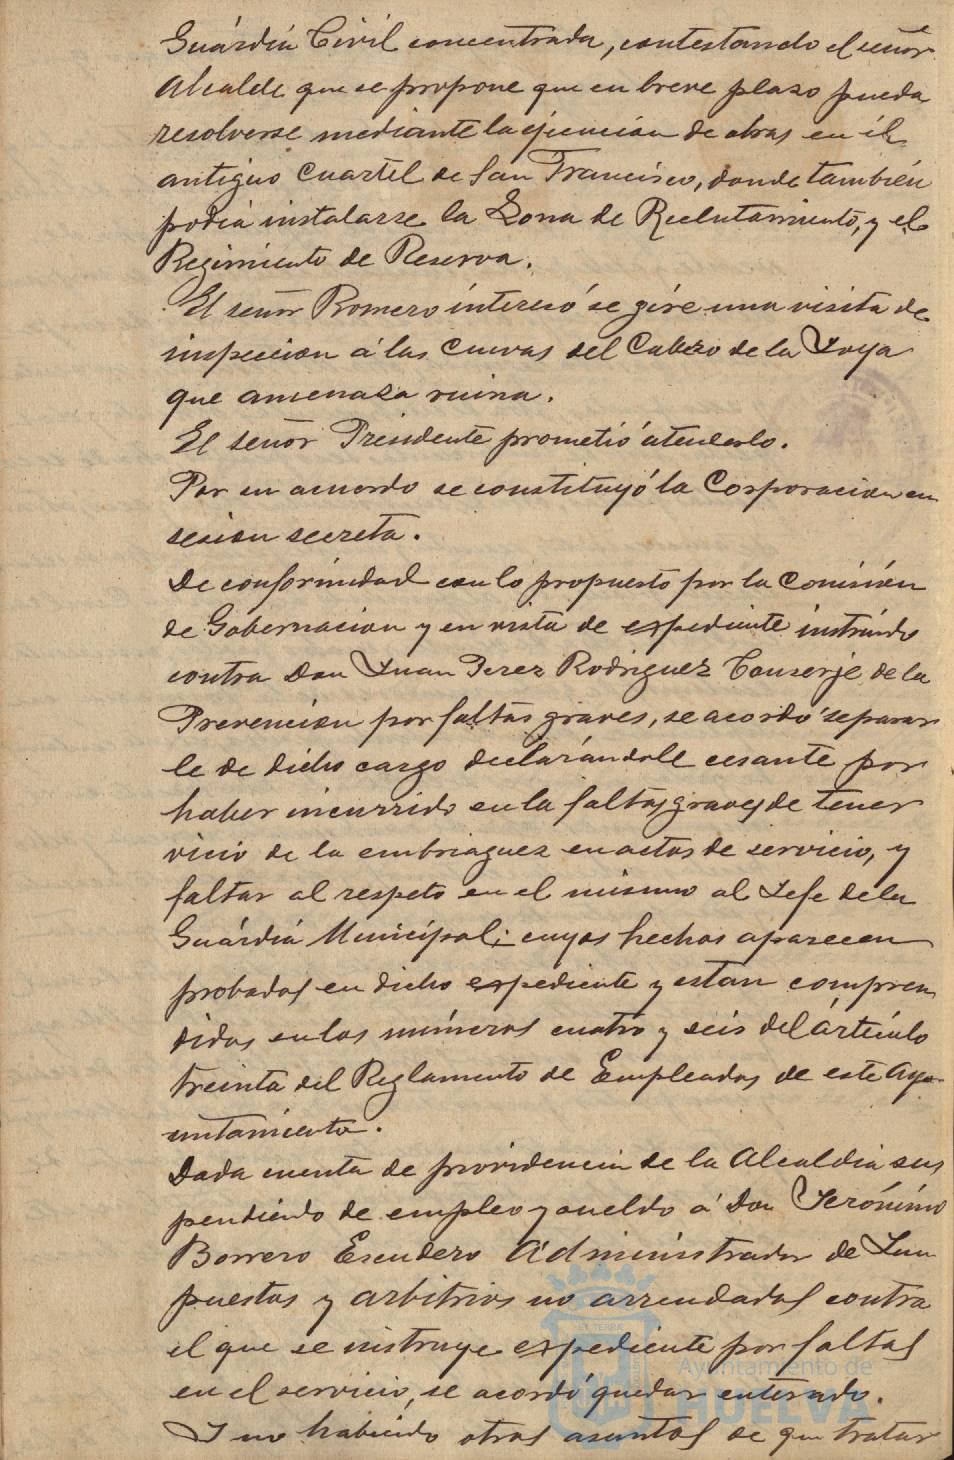 Guárdia Civil concentrada, contestando el señor
Alcalde que se propone que en breve plaso pueda
resolverse mediante la ejecucion de obras en él
antiguo Cuartel de San Francisco, donde también
podia instalarse la Zona de Reclutamiento, y el
Regimiento de Reserva.
El señor Romero interesó se gire una visita de
inspeccion á las Cuevas del Cabezo de la Joya
que amenaza ruina.
El señor Presidente prometió atenderlo.
Por su acuerdo se constituyó la Corporacion en
sesion secreta.
De conformidad con lo propuesto por la Comisión
de Gobernacion y en vista de expediente instruido
contra Don Juan Perez Rodriguez Conserje de la
Prevencion por faltas graves, se acordó separar
le de dicho cargo declarándole cesante por
haber incurrido en la faltas graves de tener
vicio de la embriaguez en actos de servicio, y
faltar al respeto en el mismo al Jefe de la
Guárdia Municipal; cuyos hechos aparecen
probados en dicho expediente y estan compren
didos en los números cuatro y seis del ártículo
treinta del Reglamento de Empleados de este Ayu
untamiento.
Dada cuenta de providencia de la Alcaldia sus
pendiendo de empleo y sueldo á Don Jerónimo
Borrero Escudero Administrador de Im
puestos y arbitrios no arrendados contra
el que se instruye expediente por faltas
en el servicio, se acordó quedar enterado.
Y no habiendo otros asuntos de que tratar
Ayuntamiento de
HUELVA